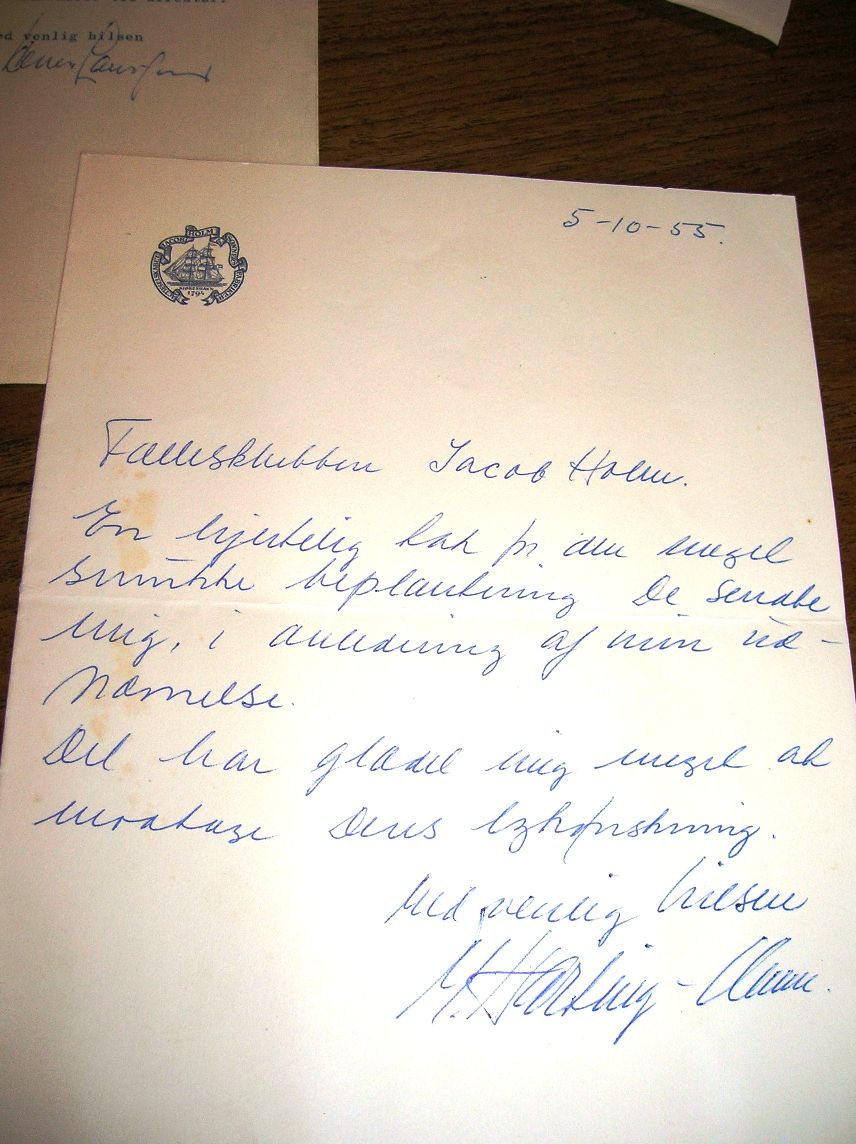 ed venlig hilsen
5-10-55.
JACOB HOLM
KJØBENHAVN
1794
Fællesklubben Jacob Holm.
En hjertelig tak for den meget
smukke beplantning De sendte
mig, i anledning af min ud-
nævnelse.
Det har glædet mig meget at
modtage Deres lykønskning.
Med venlig hilsen
M.